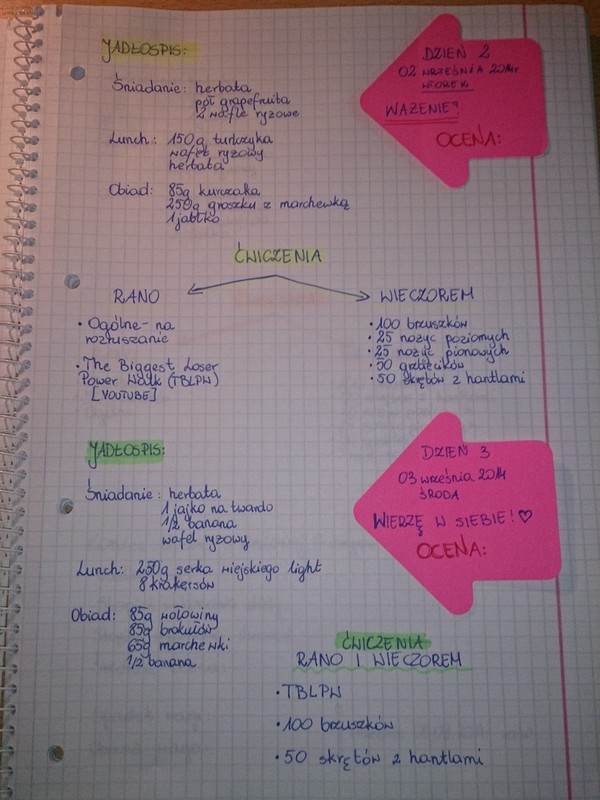 JADŁOSPIS:
Śniadanie: herbata
pół grapefruita
2 wafle ryżowe
Lunch: 150g tuńczyka
wafel ryżowy
herbata
Obiad: 85g kurczaka
250g groszku z marchewką
1 jabłko
DZIEŃ 2
02 WRZEŚNIA 2014r
WTOREK
WAŻENIE?
OCENA:
ĆWICZENIA
RANO
• Ogólne - na
rozruszanie
• The Biggest Loser
Power Walk (TBLPW)
[YOUTUBE]
WIECZOREM
• 100 brzuszków
• 25 nożyc poziomych
• 25 nożyc pionowych
• 50 grzbiecików
• 50 skrętów z hantlami
JADŁOSPIS:
Śniadanie: herbata
1 jajko na twardo
1/2 banana
wafel ryżowy
Lunch: 250g serka wiejskiego light
8 krakersów
Obiad: 85g wołowiny
85g brokułów
65g marchewki
1/2 banana
DZIEŃ 3
03 września 2014
ŚRODA
WIERZĘ W SIEBIE! ♡
OCENA:
ĆWICZENIA
RANO I WIECZOREM
• TBLPW
• 100 brzuszków
• 50 skrętów z hantlami